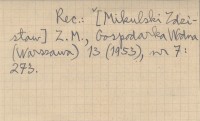 Rec.: [Mikulski Zdzi-
sław] Z.M., Gospodarka Wodna
(Warszawa) 13 (1953), nr 7:
273.